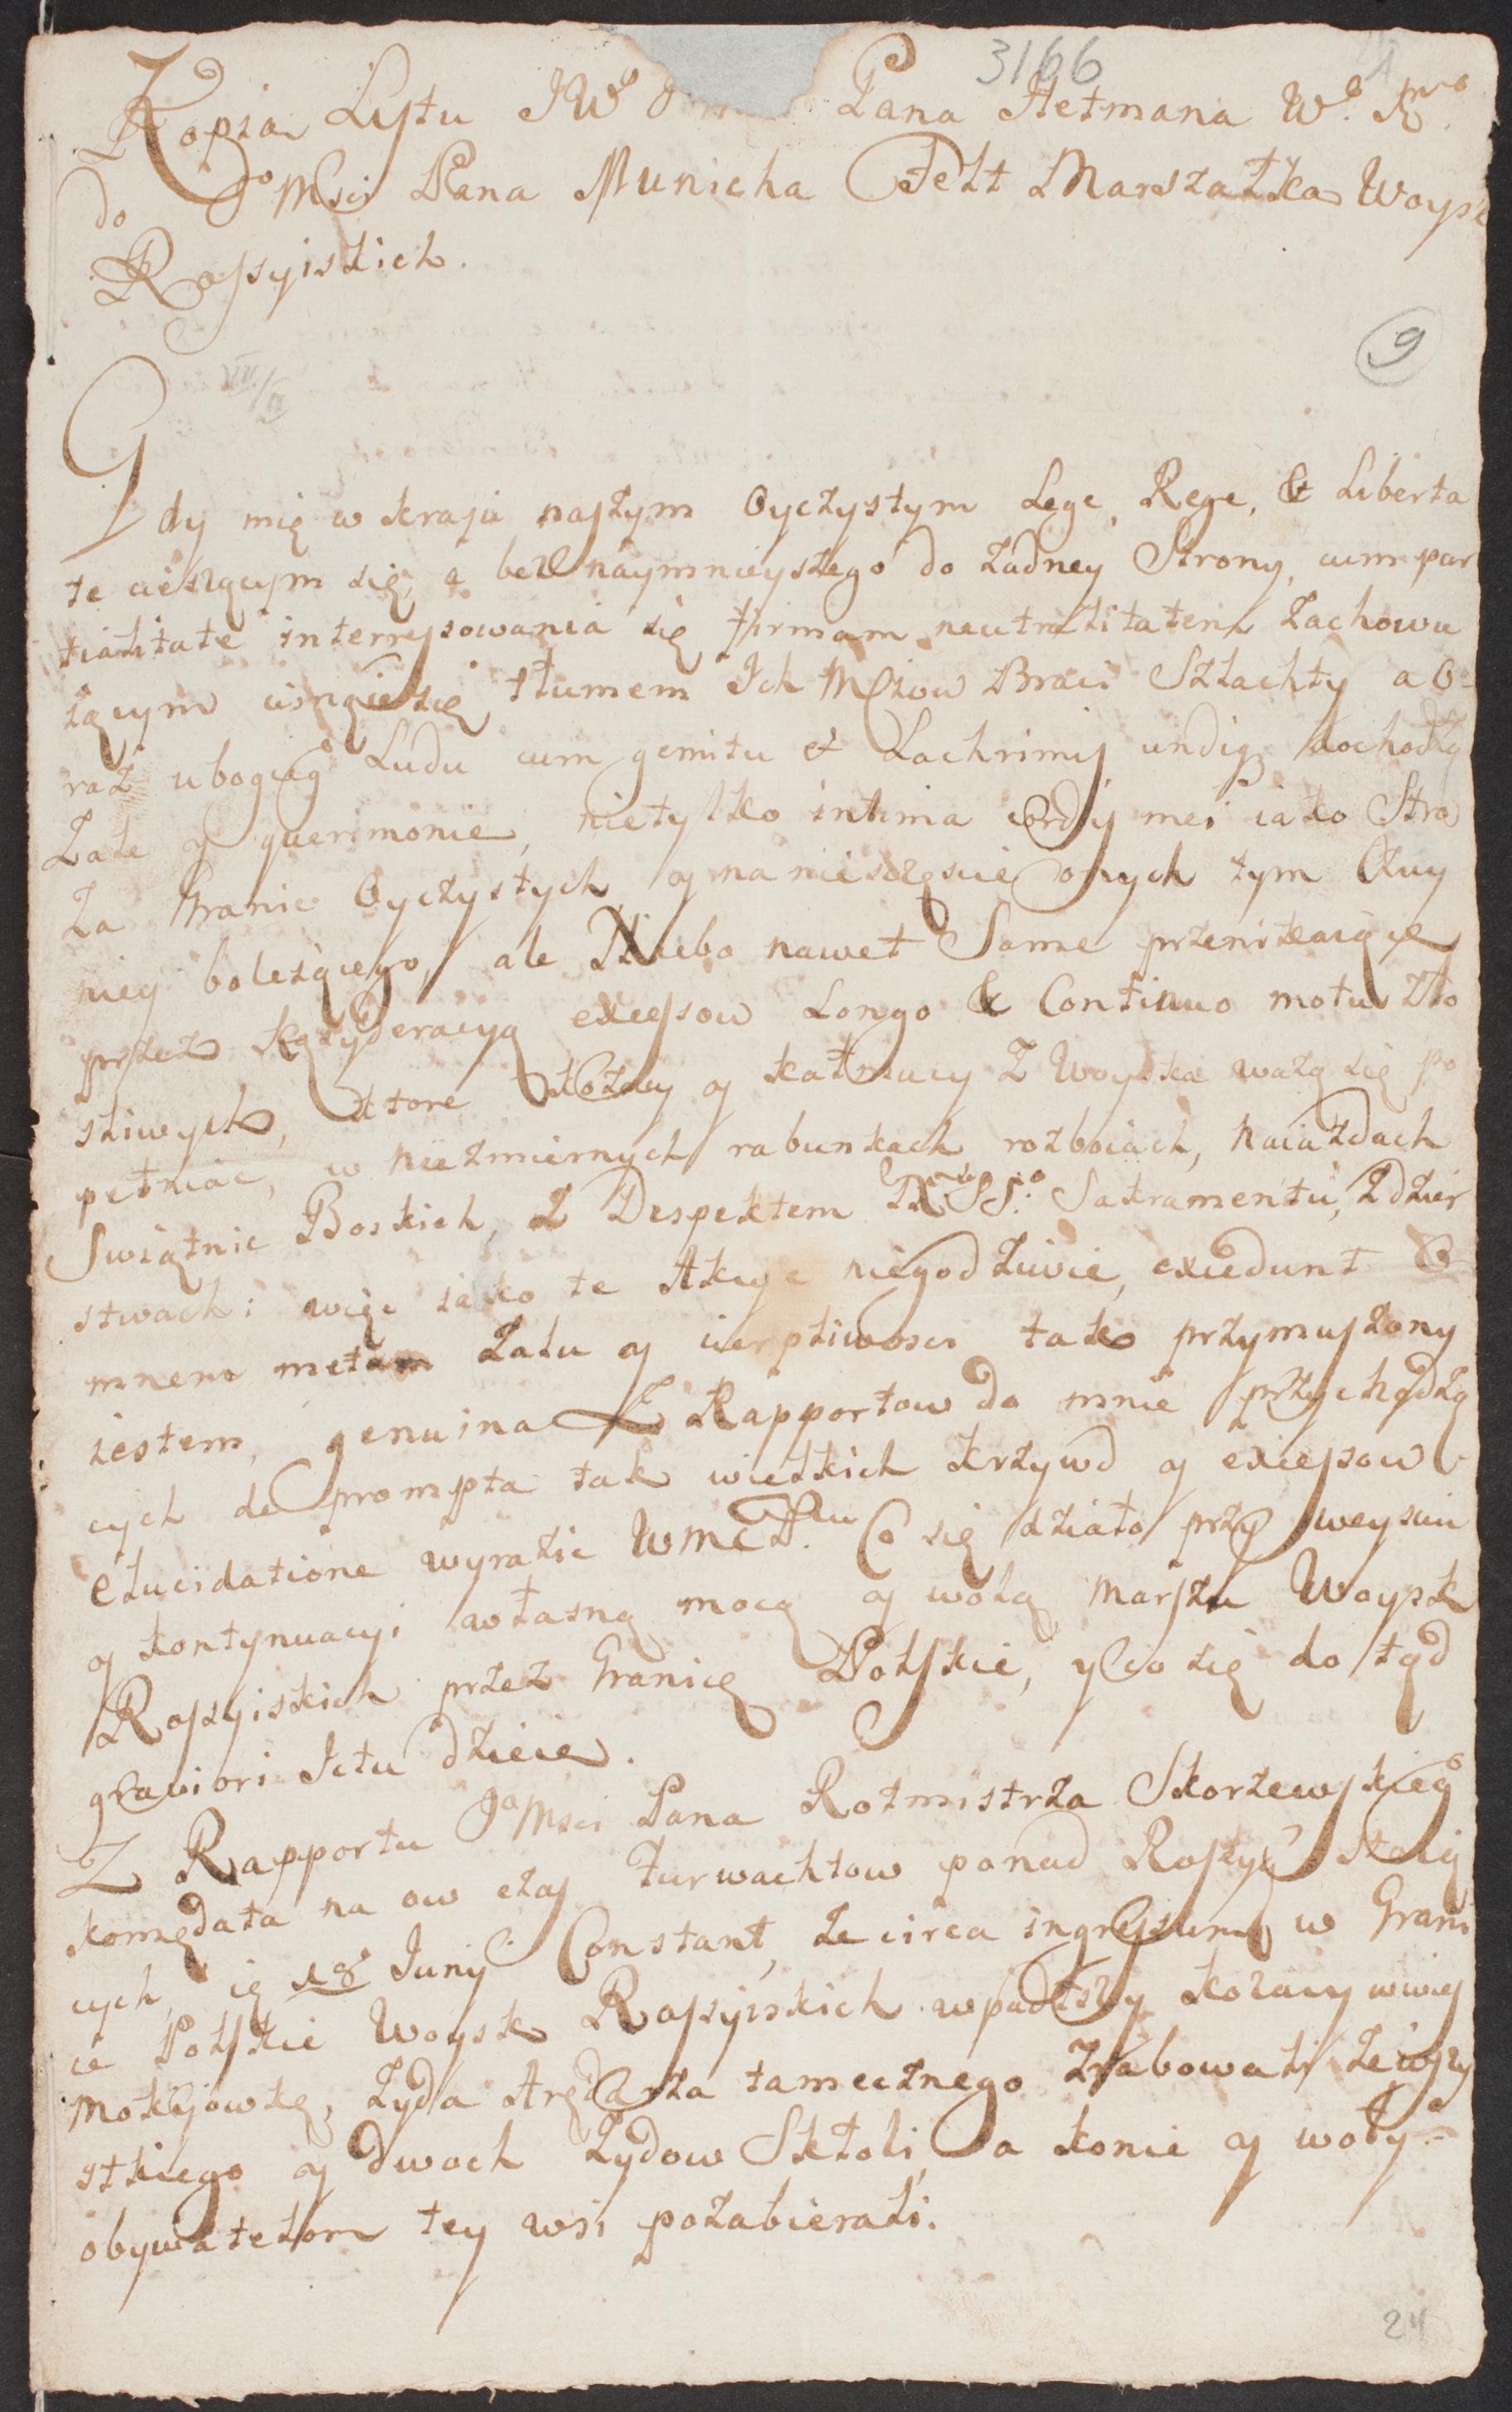 3166
Kopia Listu JWo Pana Hetmana W. K.
do Jo Msci Pana Municha Felt Marszałka Woysk
Rossyiskich.
9
VII/2
Gdy mię w kraju naszym Oyczystym Lege, Rege, & Liberta
te cieszącym się, a bez naymnieyszego do żadney Strony, cum par
tialitate interressowania się firmam neutralitatem zachowu
iącym cisnące się tłumem Ich Mściow Braci Szlachty a o-
raz ubogieg Ludu cum gemitu et Lachrimis undiq dochodzą
żale y querimonie, nietylko intima cordis mei iako Stro
ża Granic Oyczystych y na nieszczęscie onych tym Czuy
niey boleiącego, ale Niebo nawet Same przenikaiące
przez kąsyderacyą excessow Longo & Continuo motu zło
sliwych, ktore kozacy y kałmucy z Woyska ważą się po
pełniac, w niezmiernych rabunkach rozboiach, naiazdach
Swiątnic Boskich, z Despektem Nasso Sakramentu, zdzier
stwach: więc iako te Akcye niegodziwie, excedunt o
mnem metam żalu y cierpliwosci tak przymuszony
iestem, genuina z Rapportow do mnie przychodzą
cych de prompta tak wielkich krzywd y excessow
elucidatione wyrazic WMCPanu. Co się działo przy weysciu
y kontynuacyi własną mocą y wolą Marszu Woysk
Rossyiskich przez Granicę Polskie, y co się do tąd
graviori Ictu dzieie.
Z Rapportu Ja Msci Pana Rotmistrza Skorzewskieg
komędata na ow czas Furwachtow ponad Rossyą Stoią
cych, ię 18 Junij Constant, że circa ingressum w Grani
ce Polskie Woysk Rossyiskich wpadłszy kozacy w wieś
Mokijowkę, żyda Arędarza tamecznego zrabowali ze wszy
stkiego y dwoch żydow Skłoli, a konie y woły
obywatelom tey wsi pozabierali.
24